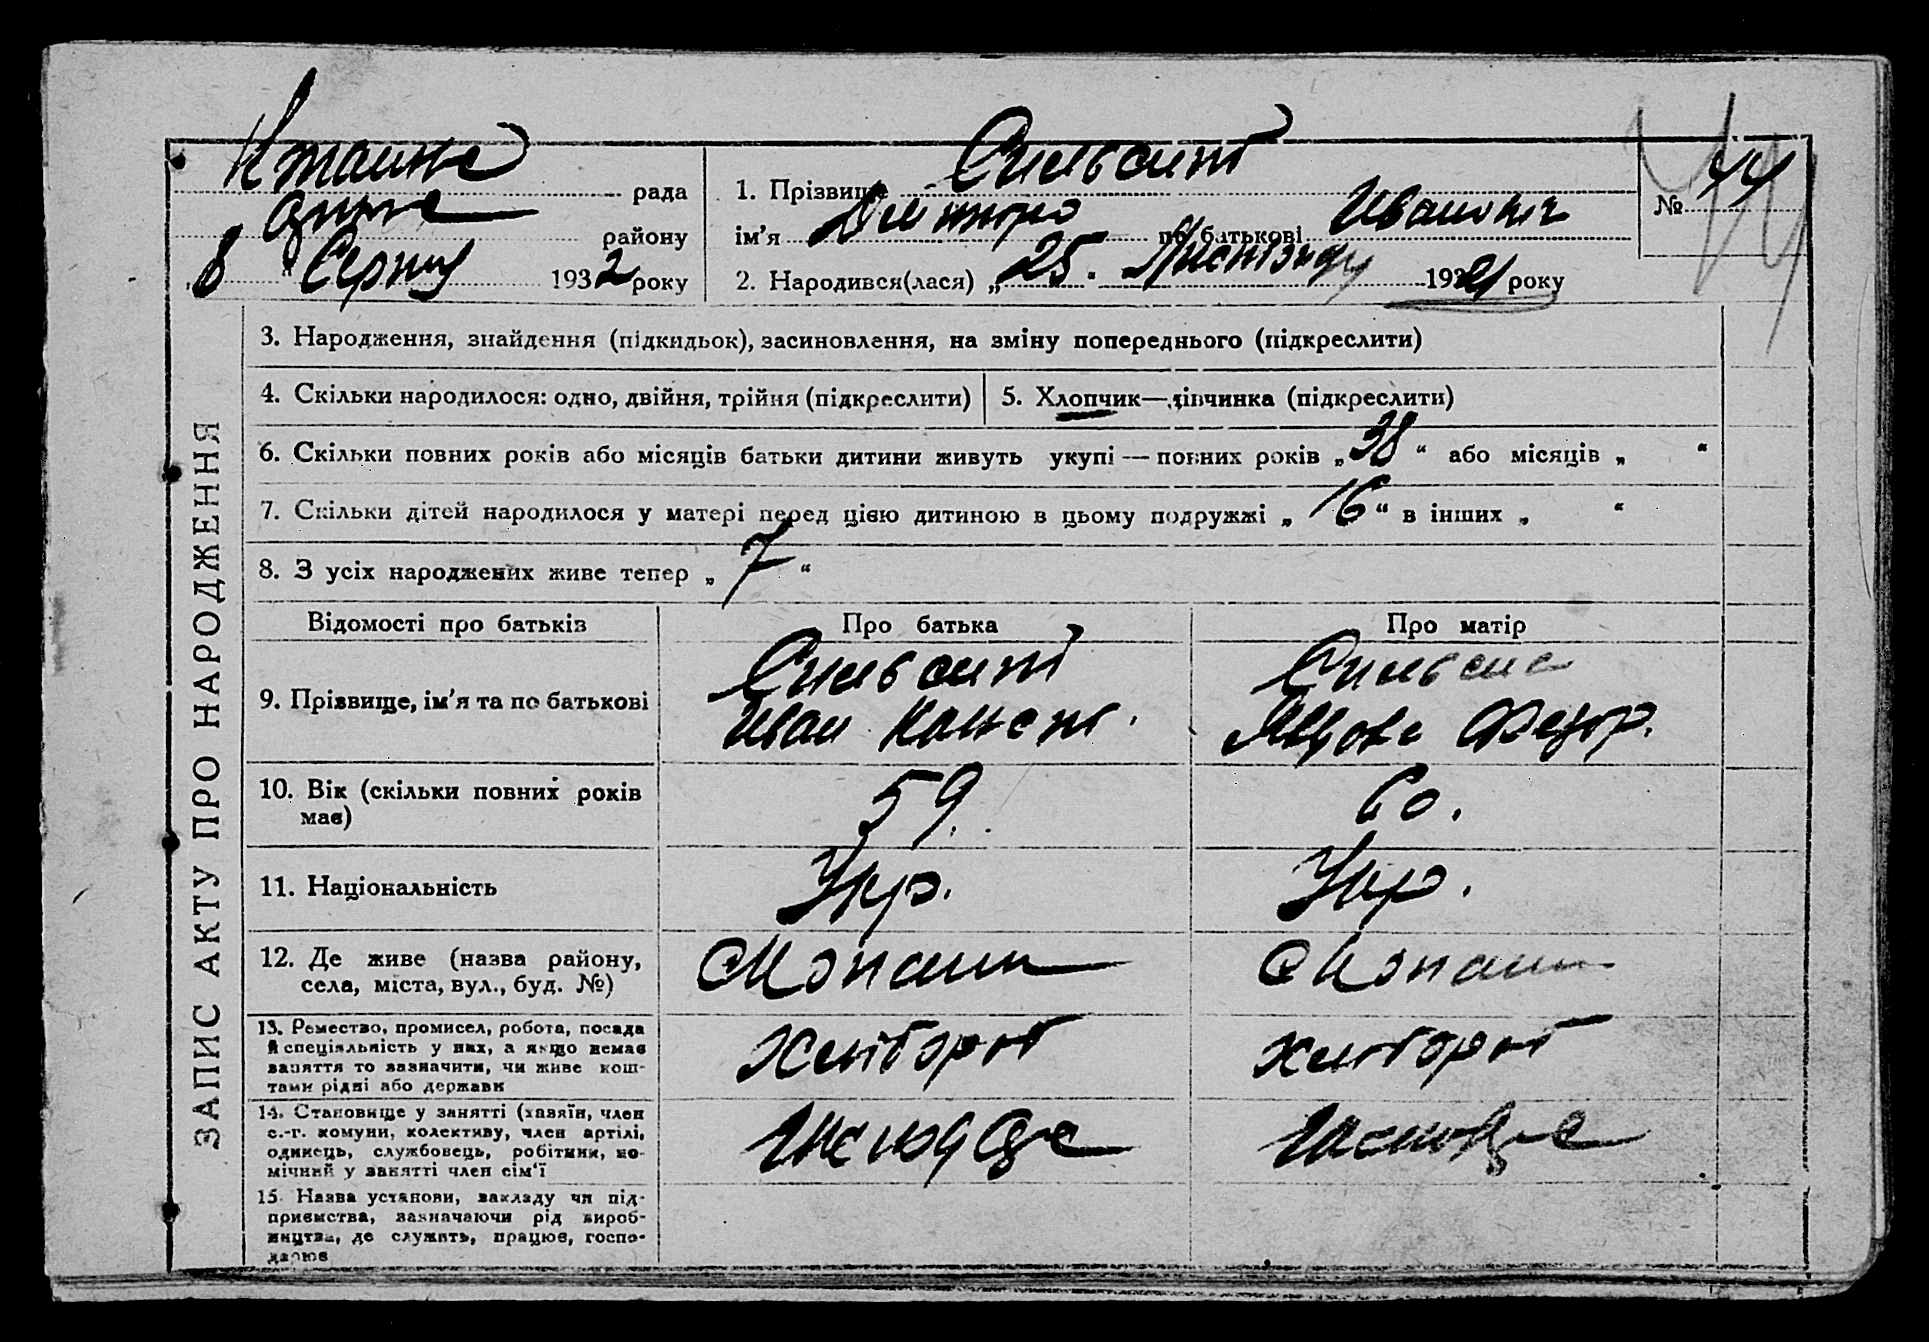 рада
району
8 Серпня 1932 року
1. Прізвище
ім'я Дмитро по батькові Иванович
2. Народився(лася) „ 25. Листопаду 1921 року
№ 44
ЗАПИС АКТУ ПРО НАРОДЖЕННЯ
3. Народження, знайдення (підкидьок), засиновлення, на зміну попереднього (підкреслити)
4. Скільки народилося: одно, двійня, трійня (підкреслити)
5. Хлопчик—дівчинка (підкреслити)
6. Скільки повних років або місяців батьки дитини живуть укупі — повних років „ 38 “ або місяців „ “
7. Скільки дітей народилося у матері перед цією дитиною в цьому подружжі „ 16 “ в інших „ “
8. З усіх народжених живе тепер „ 7 “
Відомості про батьків
Про батька
Про матір
9. Прізвище, ім'я та по батькові
Иван
10. Вік (скільки повних років
має)
59.
60.
11. Національність
Укр.
Укр.
12. Де живе (назва району,
села, міста, вул., буд. №)
13. Ремество, промисел, робота, посада
й спеціяльність у них, а якщо немає
заняття то зазначити, чи живе кош-
тами рідні або держави
хлібороб
хлібороб
14. Становище у занятті (хазяїн, член
с.-г. комуни, колективу, член артілі,
одинець, службовець, робітник, по-
мічний у занятті член сім'ї
15. Назва установи, закладу чи під-
приємства, зазначаючи рід вироб-
ництва, де служить, працює, госпо-
дарює